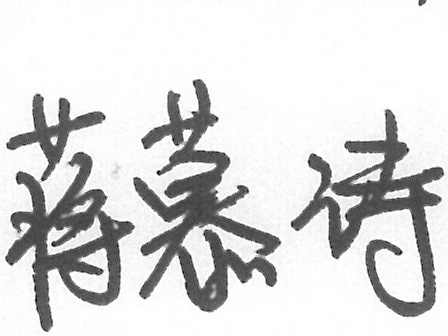 蒋慕诗